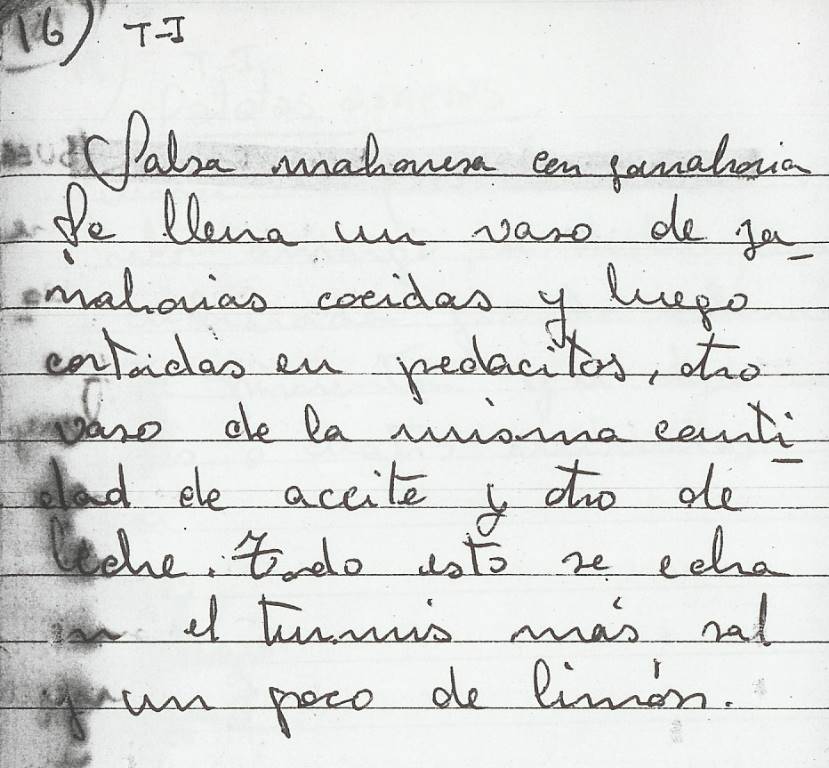 16) T-I
Salsa mahonesa con zanahoria
Se llena un vaso de za_
nahorias cocidas y luego
cortadas en pedacitos, otro
vaso de la misma canti_
dad de aceite y otro de
leche. Todo esto se echa
en el turmis más sal
y un poco de limón.